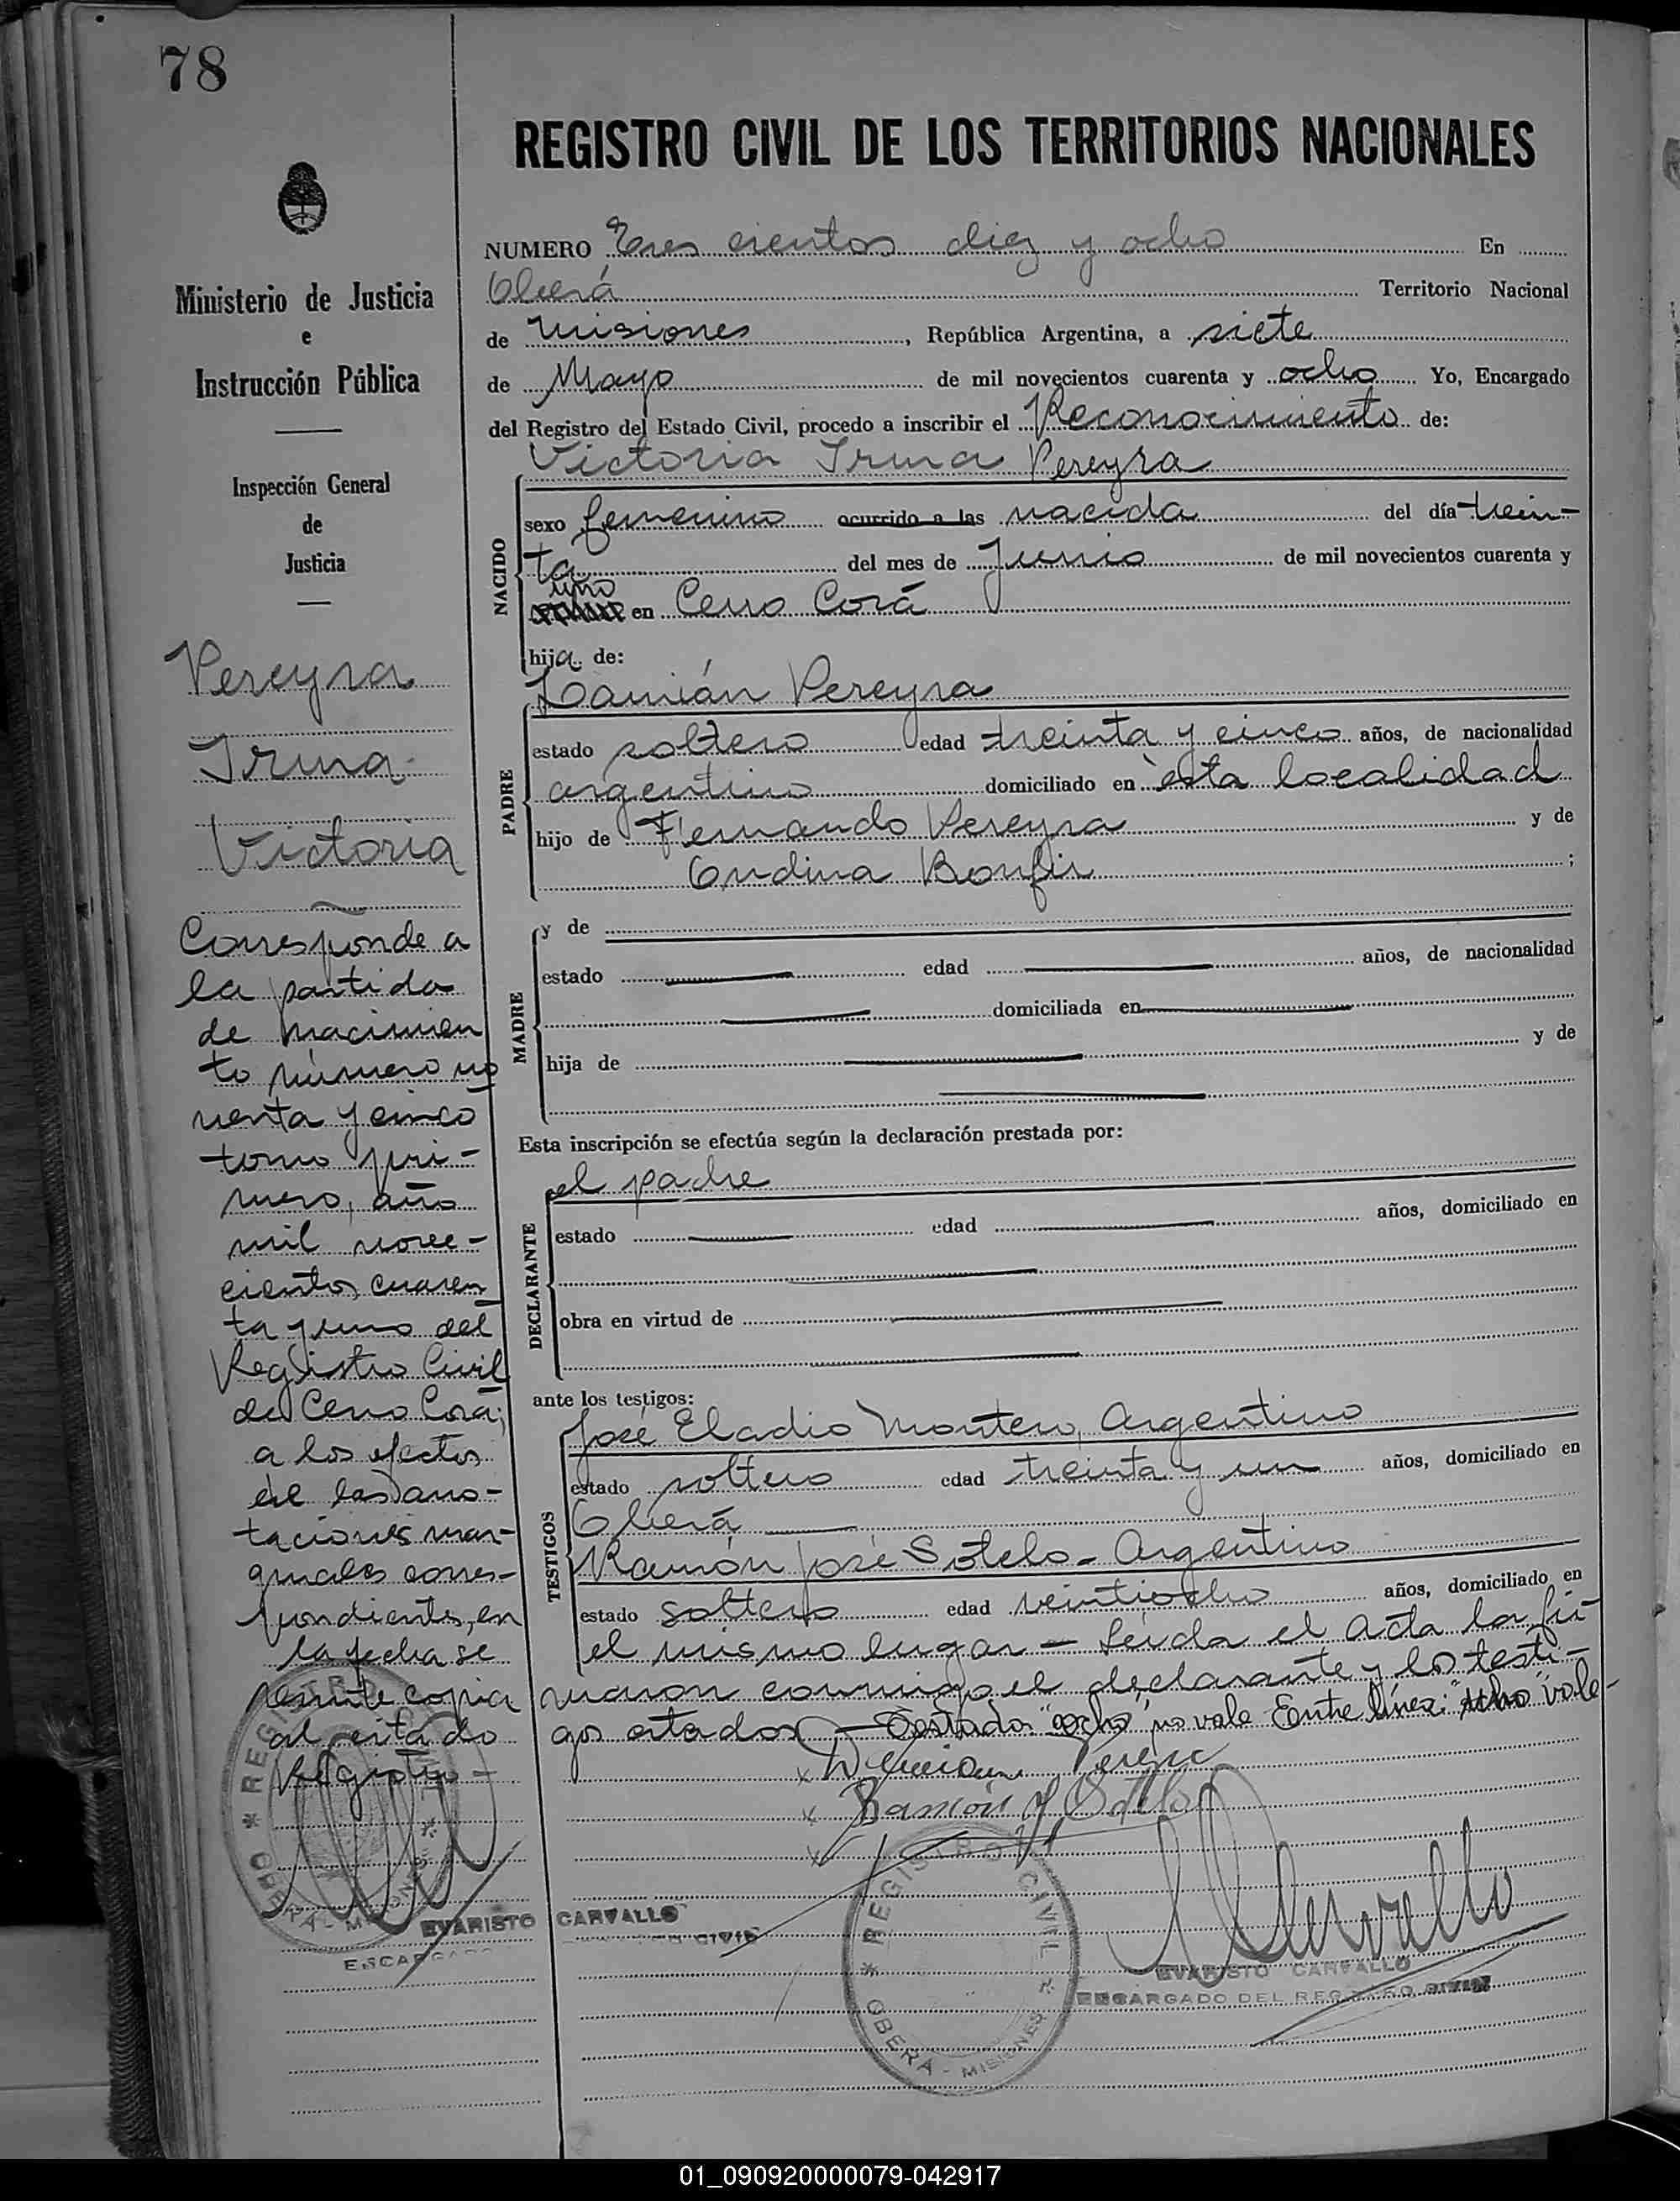 78
REGISTRO CIVIL DE LOS TERRITORIOS NACIONALES
Ministerio de Justicia
e
Instrucción Pública
Inspección General
de
Justicia
Pereyra
Irma
Victoria
Corresponde a
la partida
de nacimien
to número no
venta y cinco
tomo pri-
mero, año
mil nove-
cientos cuaren
ta y uno del
Registro Civil
de Cerro Corá;
a los efectos
de las ano-
taciones mar-
ginales corres-
pondientes, en
la fecha se
remite copia
al citado
Registro -
REGISTRO CIVIL * OBERÁ - MISIONES *
EVARISTO CARVALLO
NUMERO Tres cientos diez y ocho En
Oberá Territorio Nacional
de Misiones, República Argentina, a siete
de Mayo de mil novecientos cuarenta y ocho Yo, Encargado
del Registro del Estado Civil, procedo a inscribir el Reconocimiento de:
Victoria Irma Pereyra
NACIDO
sexo femenino ocurrido a las nacida del día trein-
ta del mes de Junio de mil novecientos cuarenta y
uno
en Cerro Corá
hija de:
PADRE
Damián Pereyra
estado soltero edad treinta y cinco años, de nacionalidad
argentino domiciliado en esta localidad
hijo de Fernando Pereyra y de
Ondina Bonfin ;
MADRE
y de
estado edad años, de nacionalidad
domiciliada en
hija de y de
Esta inscripción se efectúa según la declaración prestada por:
DECLARANTE
el padre
estado edad años, domiciliado en
obra en virtud de
ante los testigos:
TESTIGOS
José Eladio Montero, Argentino
estado soltero edad treinta y un años, domiciliado en
Oberá
Ramón José Sotelo - Argentino
estado soltero edad veintiocho años, domiciliado en
el mismo lugar - Leída el Acta la fir
maron conmigo el declarante y los testi-
gos citados - Testado: "ocho" no vale Entre línea: vale-
Damian Pereyra
Ramón J Sotelo
REGISTRO CIVIL * OBERÁ - MISIONES *
EVARISTO CARVALLO
ENCARGADO DEL REGISTRO CIVIL
01_090920000079-042917